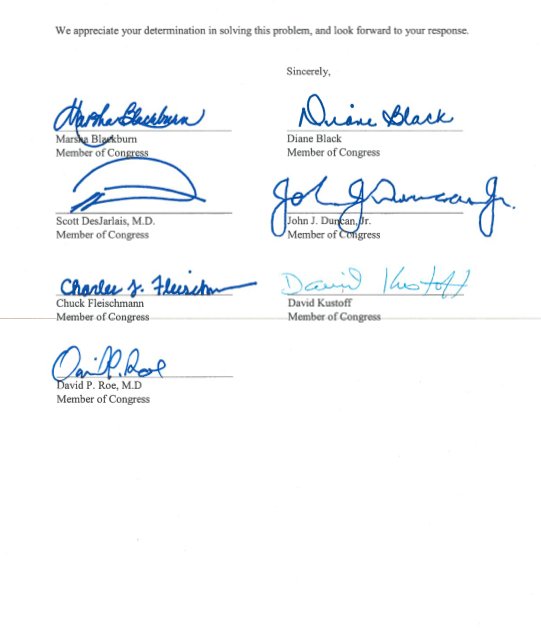 We appreciate your determination in solving this problem, and look forward to your response.
Sincerely,
Marsha Blackburn
Diane Black
Marsha Blackburn
Diane Black
Member of Congress
Member of Congress
John J Duncan Jr.
Scott DesJarlais, M.D.
John J. Duncan, Jr.
Member of Congress
Member of Congress
Charles J. Fleischmann
David Kustoff
Chuck Fleischmann
David Kustoff
Member of Congress
Member of Congress
David P. Roe
David P. Roe, M.D
Member of Congress